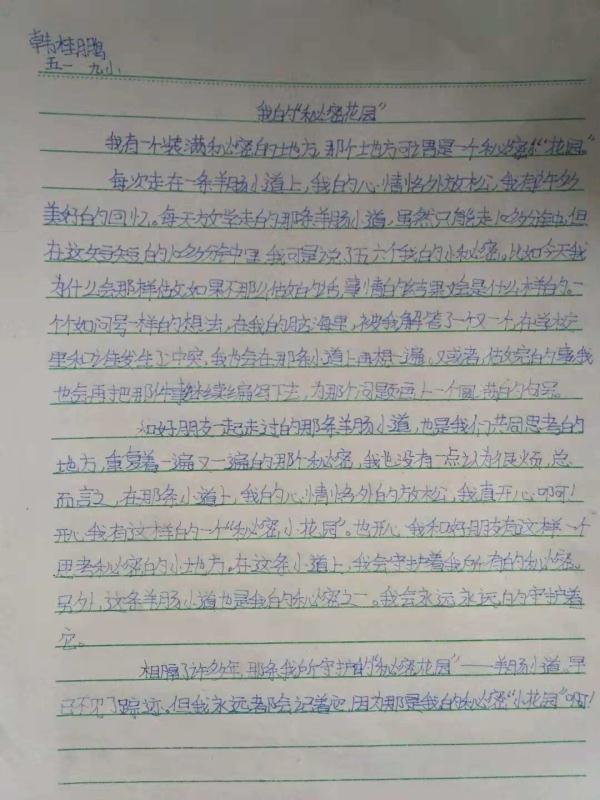 韩桂鹏
五一 九小
我的“秘密花园”
我有一个装满秘密的地方,那个地方可是一个秘密“花园”。
每次走在一条羊肠小道上,我的心情格外放松,我有许多
美好的回忆。每天放学走的那条羊肠小道,虽然只能走10多分钟,但
在这短短的10多分钟里,我可是说了五六个我的小秘密。比如今天我
为什么会那样做,如果不那么做的话,事情的结果会是什么样的。一
个个如问号一样的想法,在我的脑海里,被我解答了一次又一次,在学校
里和发生了冲突,我也会在那条小道上再想一遍。又或者,做完的事我
也会再把那件事继续编写下去,为那个问题画上一个圆满的句号。
和好朋友一起走过的那条羊肠小道,也是我们共同思考的
地方,重复着一遍又一遍的那个秘密,我也没有一点认为很烦,总
而言之,在那条小道上,我的心情格外的放松,我真开心啊!
开心我有这样的一个“秘密小花园”。也开心我和好朋友有这样一个
思考秘密的小地方。在这条小道上,我会守护着我所有的秘密。
另外,这条羊肠小道也是我的秘密之一。我会永远永远的守护着
它。
相隔了许多年,那条我所守护的“秘密花园”——羊肠小道,早
已不见了踪迹,但我永远都会记着它,因为那是我的秘密“小花园”啊!